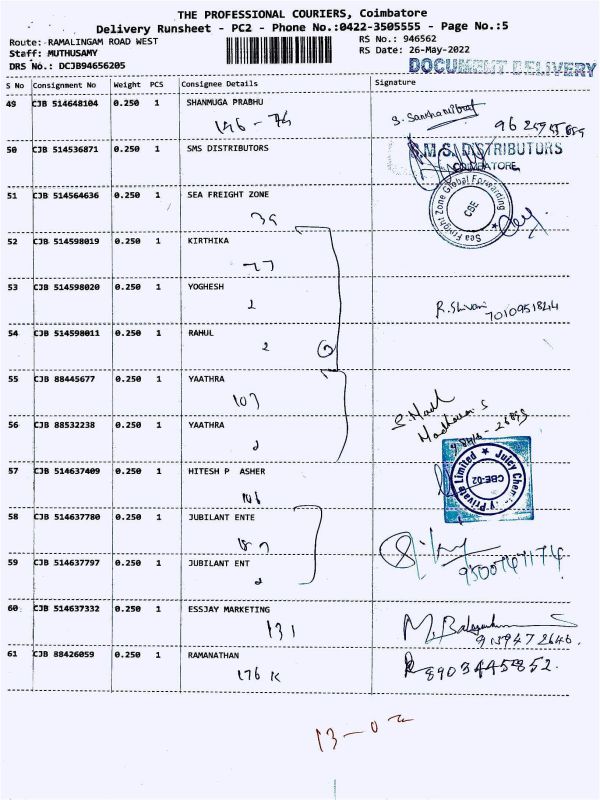 THE PROFESSIONAL COURIERS, Coimbatore
Delivery Runsheet - PC2 - Phone No.:0422-3505555 - Page No.:5
Route: RAMALINGAM ROAD WEST
RS No.: 946562
Staff: MUTHUSAMY
RS Date: 26-May-2022
DRS No.: DCJB94656205
DOCUMENT DELIVERY
S No Consignment No Weight PCS Consignee Details Signature
49 CJB 514648104 0.250 1 SHANMUGA PRABHU
50 CJB 514536871 0.250 1 SMS DISTRIBUTORS
S.M.S. DISTRIBUTORS
COIMBATORE
51 CJB 514564636 0.250 1 SEA FREIGHT ZONE
Sea Freight Zone Global Forwarding
CBE
52 CJB 514598019 0.250 1 KIRTHIKA
77
53 CJB 514598020 0.250 1 YOGHESH
2
R.Shivani
7010951844
54 CJB 514598011 0.250 1 RAHUL
2
55 CJB 88445677 0.250 1 YAATHRA
107
56 CJB 88532238 0.250 1 YAATHRA
2
Madhavan S
57 CJB 514637409 0.250 1 HITESH P ASHER
106
Private Limited ★ Juicy
CBE-02
58 CJB 514637780 0.250 1 JUBILANT ENTE
59 CJB 514637797 0.250 1 JUBILANT ENT
2
9500747174
60 CJB 514637332 0.250 1 ESSJAY MARKETING
131
9159472646.
61 CJB 88426059 0.250 1 RAMANATHAN
176 K
8903445852.